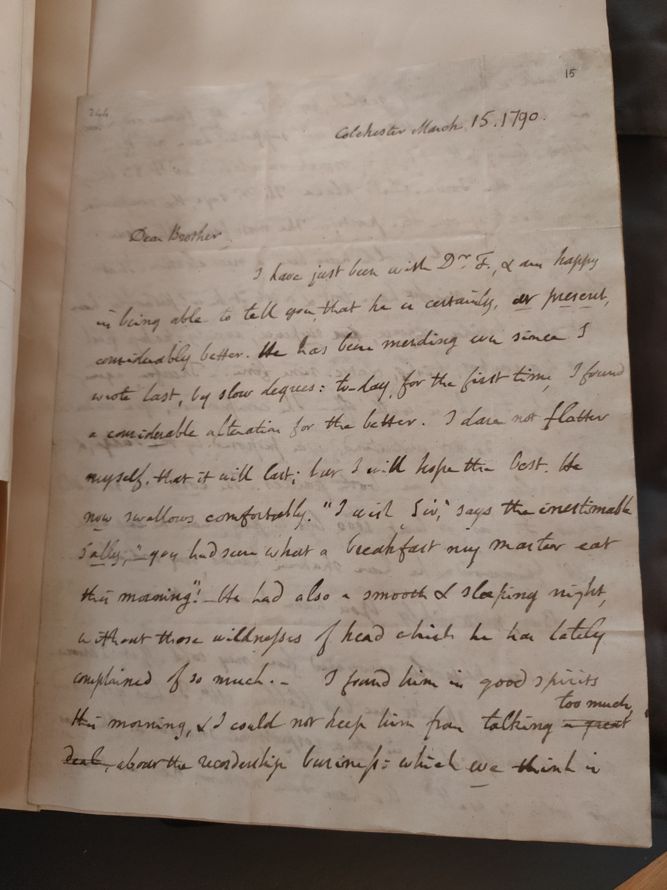 15
244
Colchester March 15. 1790.
Dear Brother,
I have just been with Dr. F., & am happy
in being able to tell you that he is certainly, at present,
considerably better. He has been mending ever since I
wrote last, by slow degrees: to-day, for the first time, I found
a considerable alteration for the better. I dare not flatter
myself that it will last; but I will hope the best. He
now swallows comfortably. "I wish Sir," says the inestimable
Sally, "you had seen what a breakfast my master eat
this morning"! He had also a smooth & sleeping night,
without those wildnesses of head which he has lately
complained of so much. – I found him in good spirits
too much,
this morning, & I could not keep him from talking a great
deal, about the recordership business: which we think is